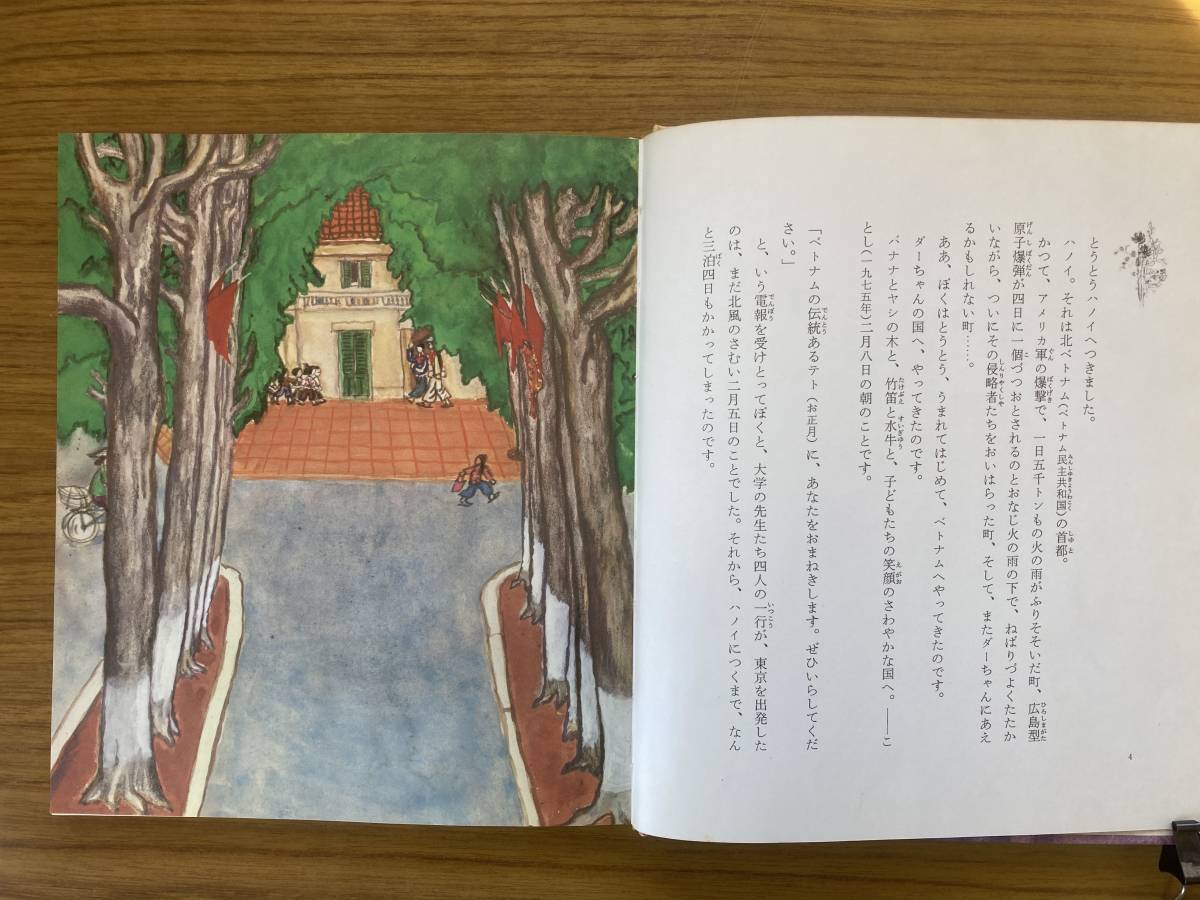 とうとうハノイへつきました。
ハノイ。それは北ベトナム(ベトナム民主共和国)の首都。
かつて、アメリカ軍の爆撃で、一日五千トンもの火の雨がふりそそいだ町、広島型
原子爆弾が四日に一個づつおとされるのとおなじ火の雨の下で、ねばりづよくたたか
いながら、ついにその侵略者たちをおいはらった町、そして、またダーちゃんにあえ
るかもしれない町……。
ああ、ぼくはとうとう、うまれてはじめて、ベトナムへやってきたのです。
ダーちゃんの国へ、やってきたのです。
バナナとヤシの木と、竹笛と水牛と、子どもたちの笑顔のさわやかな国へ。――こ
とし(一九七五年)二月八日の朝のことです。
「ベトナムの伝統あるテト(お正月)に、あなたをおまねきします。ぜひいらしてくだ
さい。」
と、いう電報を受けとってぼくと、大学の先生たち四人の一行が、東京を出発した
のは、まだ北風のさむい二月五日のことでした。それから、ハノイにつくまで、なん
と三泊四日もかかってしまったのです。
4